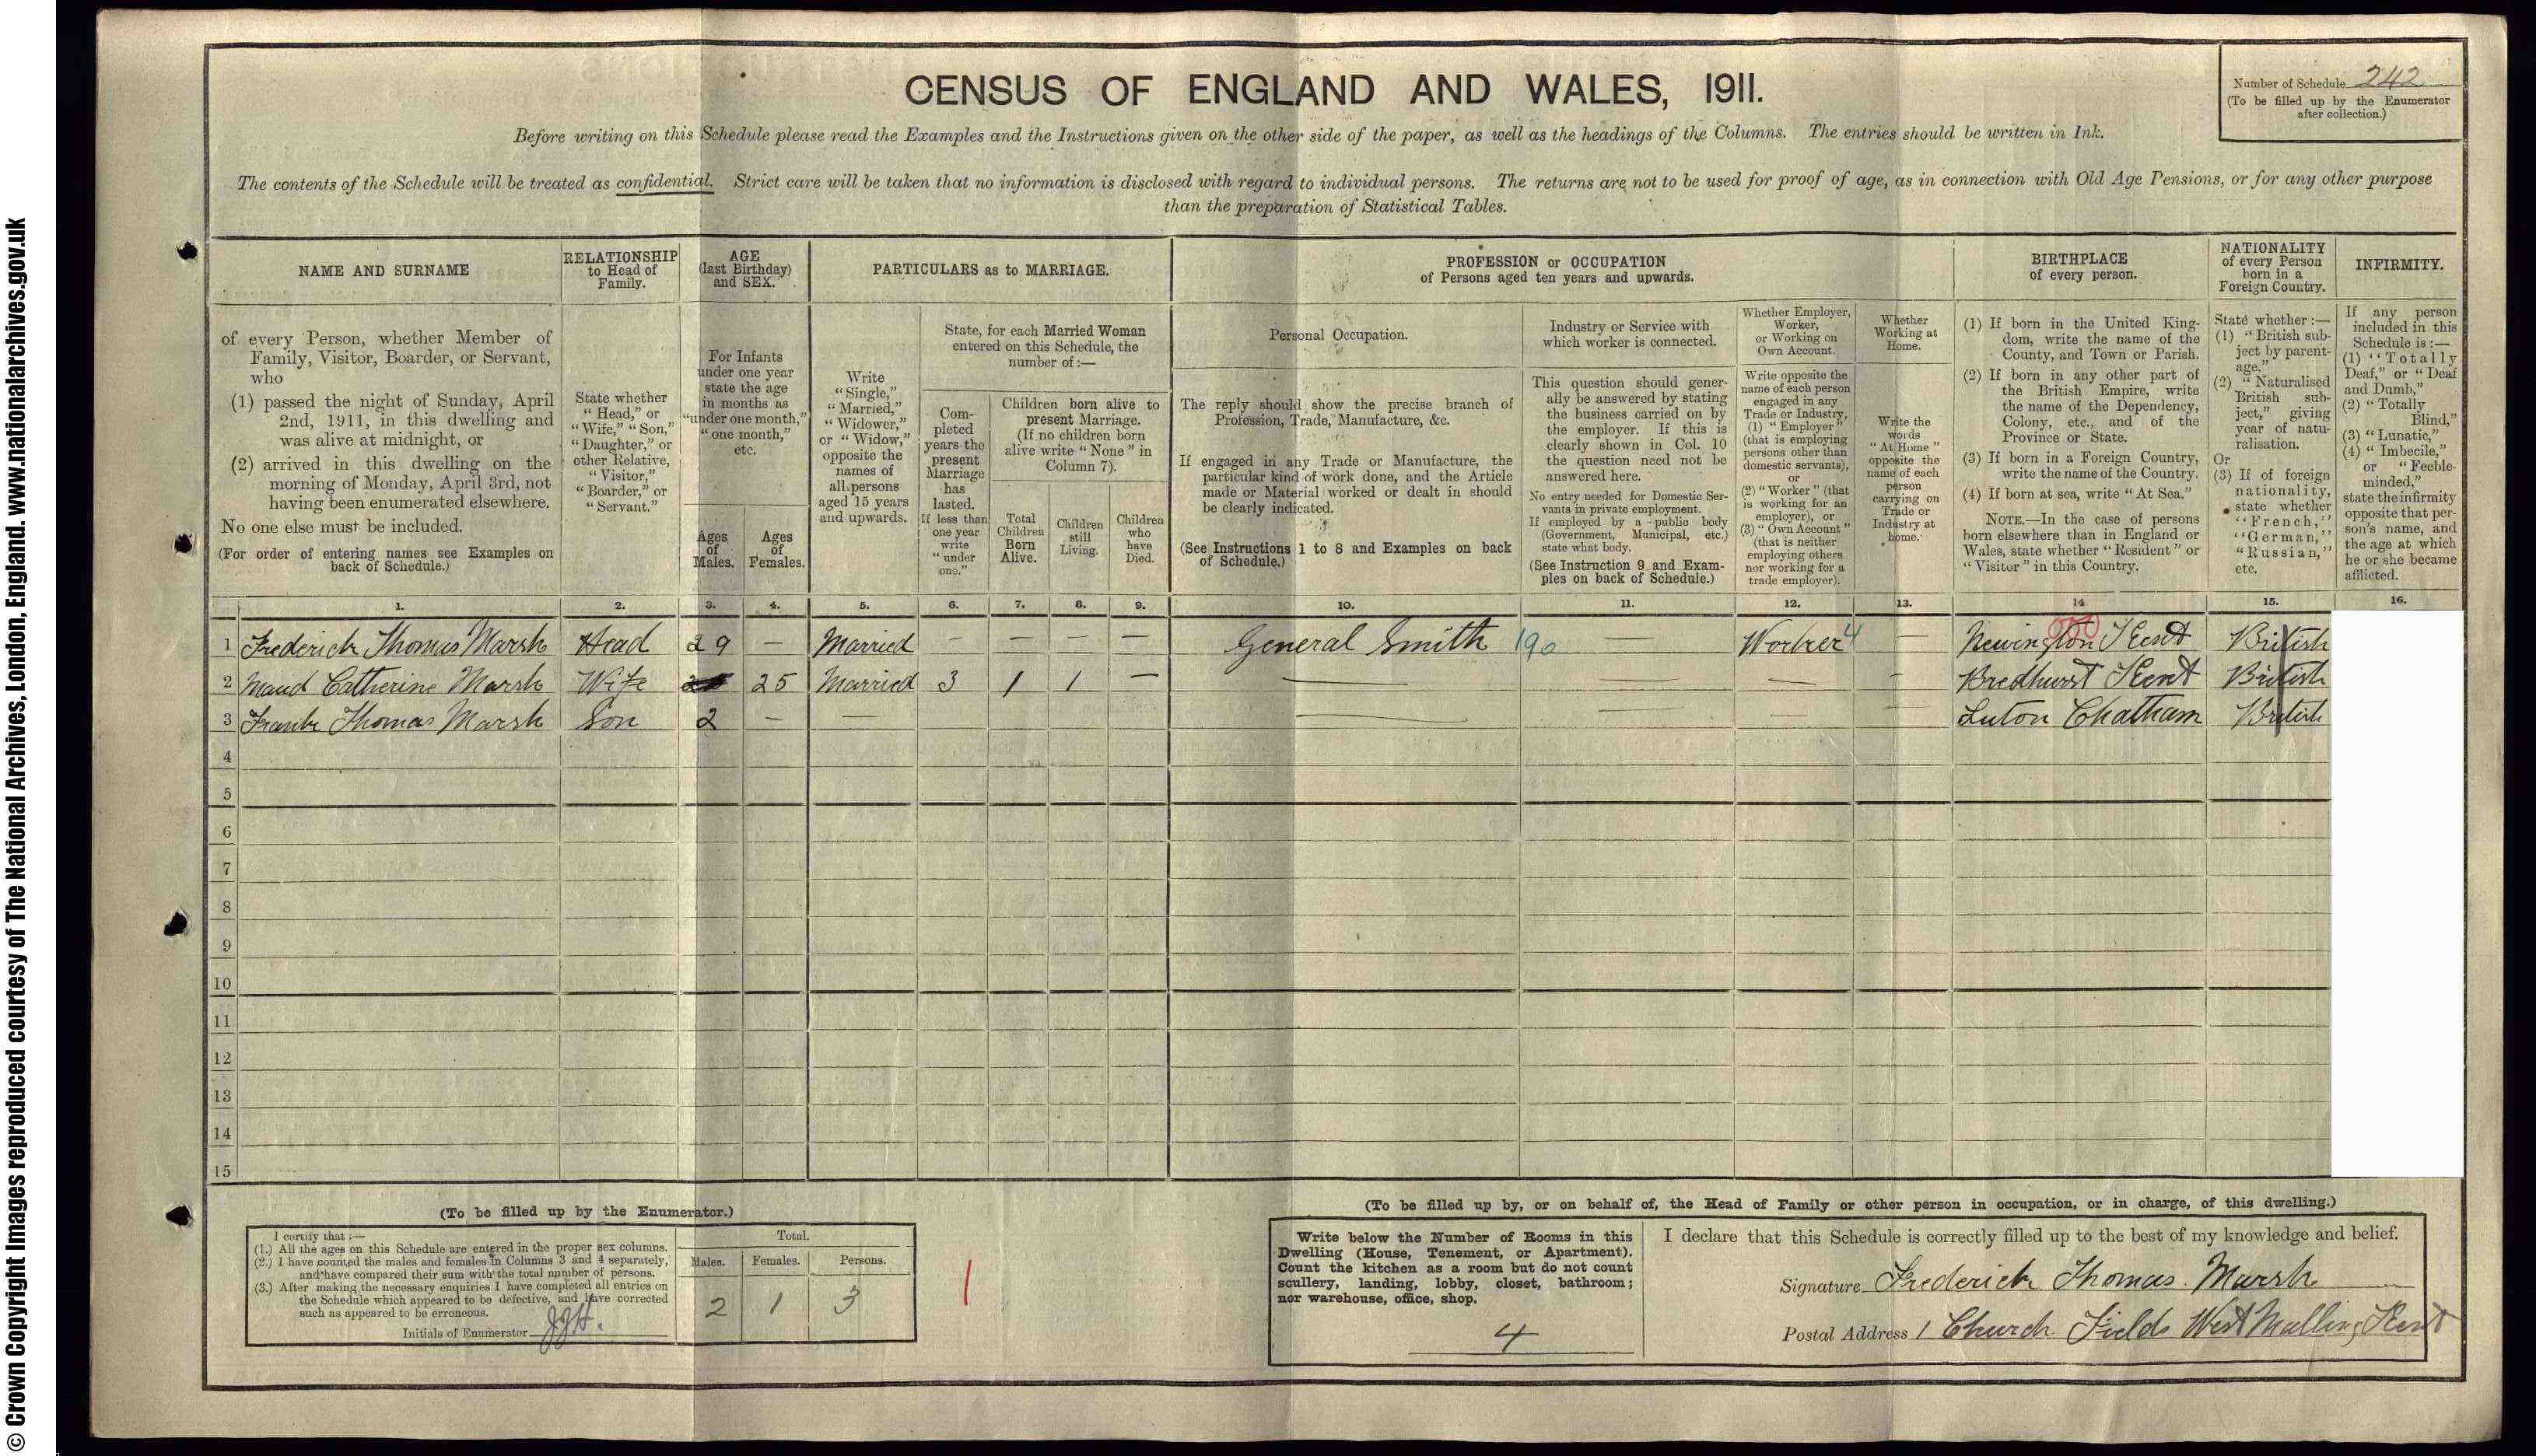 © Crown Copyright Images reproduced courtesy of The National Archives, London, England. www.nationalarchives.gov.uk
CENSUS OF ENGLAND AND WALES, 1911.
Number of Schedule 242
(To be filled up by the Enumerator
after collection.)
Before writing on this Schedule please read the Examples and the Instructions given on the other side of the paper, as well as the headings of the Columns. The entries should be written in Ink.
The contents of the Schedule will be treated as confidential. Strict care will be taken that no information is disclosed with regard to individual persons. The returns are not to be used for proof of age, as in connection with Old Age Pensions, or for any other purpose
than the preparation of Statistical Tables.
NAME AND SURNAME
of every Person, whether Member of
Family, Visitor, Boarder, or Servant,
who
(1) passed the night of Sunday, April
2nd, 1911, in this dwelling and
was alive at midnight, or
(2) arrived in this dwelling on the
morning of Monday, April 3rd, not
having been enumerated elsewhere.
No one else must be included.
(For order of entering names see Examples on
back of Schedule.)
RELATIONSHIP
to Head of
Family.
State whether
"Head," or
"Wife," "Son,"
"Daughter," or
other Relative,
"Visitor,"
"Boarder," or
"Servant."
AGE
(last Birthday)
and SEX.
For Infants
under one year
state the age
in months as
"under one month,"
"one month,"
etc.
Ages
of
Males.
Ages
of
Females.
PARTICULARS as to MARRIAGE.
Write
"Single,"
"Married,"
"Widower,"
or "Widow,"
opposite the
names of
all persons
aged 15 years
and upwards.
State, for each Married Woman
entered on this Schedule, the
number of:—
Com-
pleted
years the
present
Marriage
has
lasted.
If less than
one year
write
"under
one."
Children born alive to
present Marriage.
(If no children born
alive write "None" in
Column 7).
Total
Children
Born
Alive.
Children
still
Living.
Children
who
have
Died.
PROFESSION or OCCUPATION
of Persons aged ten years and upwards.
Personal Occupation.
The reply should show the precise branch of
Profession, Trade, Manufacture, &c.
If engaged in any Trade or Manufacture, the
particular kind of work done, and the Article
made or Material worked or dealt in should
be clearly indicated.
(See Instructions 1 to 8 and Examples on back
of Schedule.)
Industry or Service with
which worker is connected.
This question should gener-
ally be answered by stating
the business carried on by
the employer. If this is
clearly shown in Col. 10
the question need not be
answered here.
No entry needed for Domestic Ser-
vants in private employment.
If employed by a public body
(Government, Municipal, etc.)
state what body.
(See Instruction 9 and Exam-
ples on back of Schedule.)
Whether Employer,
Worker,
or Working on
Own Account.
Write opposite the
name of each person
engaged in any
Trade or Industry,
(1) "Employer"
(that is employing
persons other than
domestic servants),
or
(2) "Worker" (that
is working for an
employer), or
(3) "Own Account"
(that is neither
employing others
nor working for a
trade employer).
Whether
Working at
Home.
Write the
words
"At Home"
opposite the
name of each
person
carrying on
Trade or
Industry at
home.
BIRTHPLACE
of every person.
(1) If born in the United King-
dom, write the name of the
County, and Town or Parish.
(2) If born in any other part of
the British Empire, write
the name of the Dependency,
Colony, etc., and of the
Province or State.
(3) If born in a Foreign Country,
write the name of the Country.
(4) If born at sea, write "At Sea."
NOTE.—In the case of persons
born elsewhere than in England or
Wales, state whether "Resident" or
"Visitor" in this Country.
NATIONALITY
of every Person
born in a
Foreign Country.
State whether:—
(1) "British sub-
ject by parent-
age."
(2) "Naturalised
British sub-
ject," giving
year of natu-
ralisation.
Or
(3) If of foreign
nationality,
state whether
"French,"
"German,"
"Russian,"
etc.
INFIRMITY.
If any person
included in this
Schedule is:—
(1) "Totally
Deaf," or "Deaf
and Dumb,"
(2) "Totally
Blind,"
(3) "Lunatic,"
(4) "Imbecile,"
or "Feeble-
minded,"
state the infirmity
opposite that per-
son's name, and
the age at which
he or she became
afflicted.
1. 2. 3. 4. 5. 6. 7. 8. 9. 10. 11. 12. 13. 14 15. 16.
1 Frederick Thomas Marsh Head 29 — Married — — — — General Smith 190 — Worker 4 — Newington Kent British
2 Maud Catherine Marsh Wife 25 Married 3 1 1 — — — — - Bredhurst Kent British
3 Frank Thomas Marsh Son 2 — — — — — — Luton Chatham British
4
5
6
7
8
9
10
11
12
13
14
15
(To be filled up by the Enumerator.)
I certify that:—
(1.) All the ages on this Schedule are entered in the proper sex columns.
(2.) I have counted the males and females in Columns 3 and 4 separately,
and have compared their sum with the total number of persons.
(3.) After making the necessary enquiries I have completed all entries on
the Schedule which appeared to be defective, and have corrected
such as appeared to be erroneous.
Initials of Enumerator
Total.
Males. Females. Persons.
2 1 3
1
(To be filled up by, or on behalf of, the Head of Family or other person in occupation, or in charge, of this dwelling.)
Write below the Number of Rooms in this
Dwelling (House, Tenement, or Apartment).
Count the kitchen as a room but do not count
scullery, landing, lobby, closet, bathroom;
nor warehouse, office, shop.
4
I declare that this Schedule is correctly filled up to the best of my knowledge and belief.
Signature Frederick Thomas Marsh
Postal Address 1 Church Fields West Malling Kent